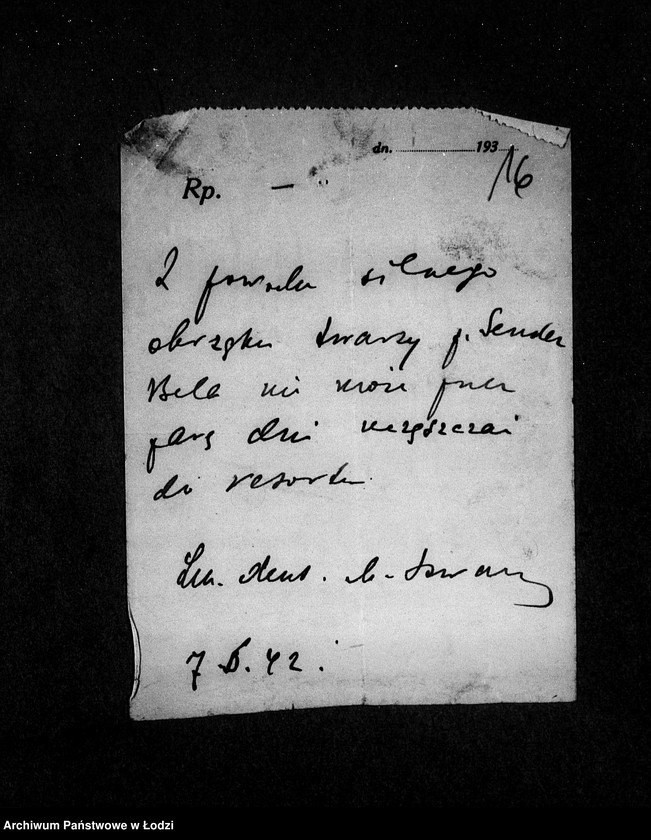 dn. ........................ 193....
16
Rp. —
Z powodu silnego
obrzęku twarzy p. Sender
Bela nie może przez
parę dni uczęszczać
do resortu.
Lek. dent.
7 42.
Archiwum Państwowe w Łodzi